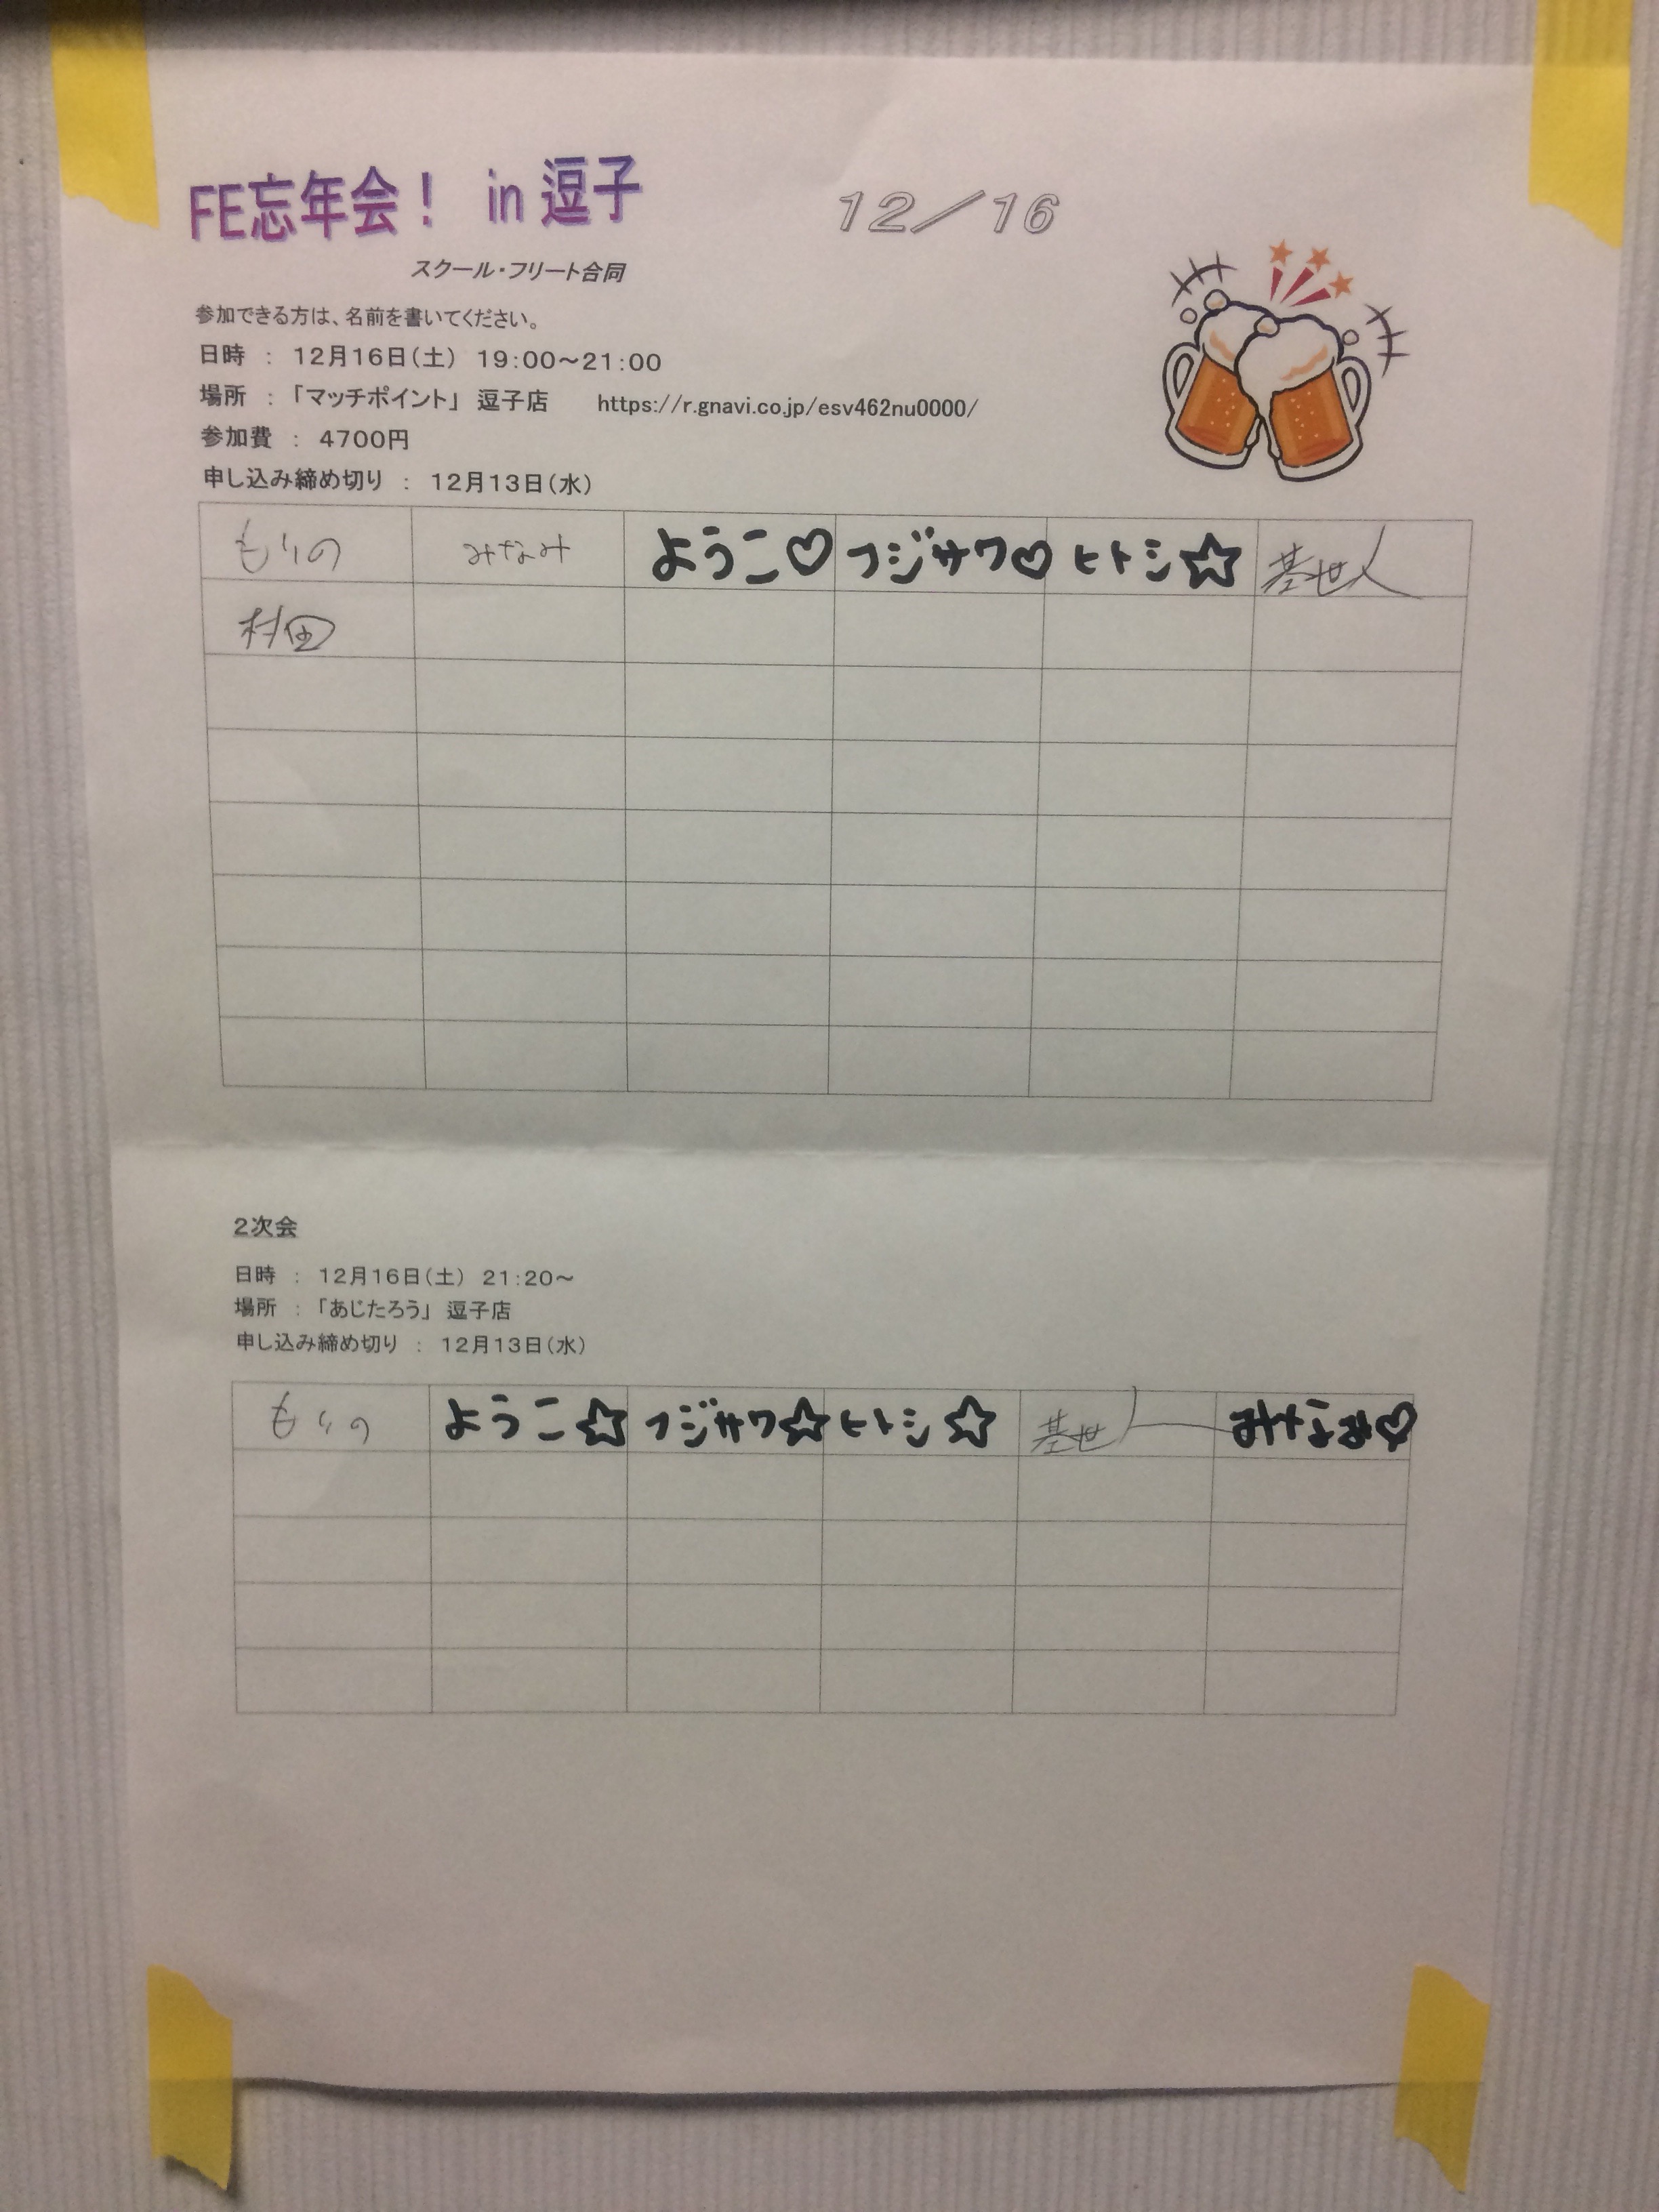 FE忘年会！ in 逗子 12／16
スクール・フリート合同
参加できる方は、名前を書いてください。
日時 ： 12月16日（土） 19：00～21：00
場所 ：「マッチポイント」 逗子店 https://r.gnavi.co.jp/esv462nu0000/
参加費 ： 4700円
申し込み締め切り ： 12月13日（水）
もりの みなみ ようこ♡ フジサワ♡ ヒトシ☆ 基世人
村田
2次会
日時 ： 12月16日（土） 21：20～
場所 ：「あじたろう」 逗子店
申し込み締め切り ： 12月13日（水）
もりの ようこ☆ フジサワ☆ ヒトシ☆ 基世人 みなみ♡